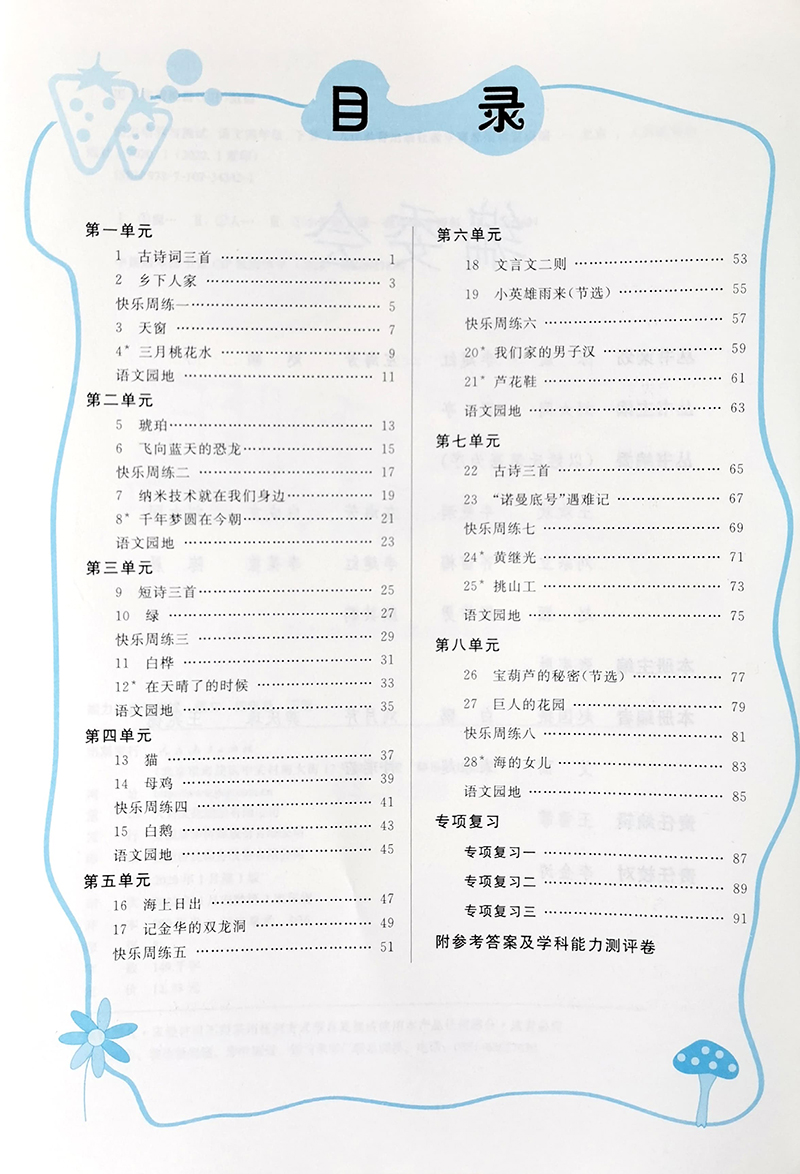 目 录
第一单元
1 古诗词三首 …… 1
2 乡下人家 …… 3
快乐周练一 …… 5
3 天窗 …… 7
4* 三月桃花水 …… 9
语文园地 …… 11
第二单元
5 琥珀 …… 13
6 飞向蓝天的恐龙 …… 15
快乐周练二 …… 17
7 纳米技术就在我们身边 …… 19
8* 千年梦圆在今朝 …… 21
语文园地 …… 23
第三单元
9 短诗三首 …… 25
10 绿 …… 27
快乐周练三 …… 29
11 白桦 …… 31
12* 在天晴了的时候 …… 33
语文园地 …… 35
第四单元
13 猫 …… 37
14 母鸡 …… 39
快乐周练四 …… 41
15 白鹅 …… 43
语文园地 …… 45
第五单元
16 海上日出 …… 47
17 记金华的双龙洞 …… 49
快乐周练五 …… 51
第六单元
18 文言文二则 …… 53
19 小英雄雨来(节选) …… 55
快乐周练六 …… 57
20* 我们家的男子汉 …… 59
21* 芦花鞋 …… 61
语文园地 …… 63
第七单元
22 古诗三首 …… 65
23 “诺曼底号”遇难记 …… 67
快乐周练七 …… 69
24* 黄继光 …… 71
25* 挑山工 …… 73
语文园地 …… 75
第八单元
26 宝葫芦的秘密(节选) …… 77
27 巨人的花园 …… 79
快乐周练八 …… 81
28* 海的女儿 …… 83
语文园地 …… 85
专项复习
专项复习一 …… 87
专项复习二 …… 89
专项复习三 …… 91
附参考答案及学科能力测评卷